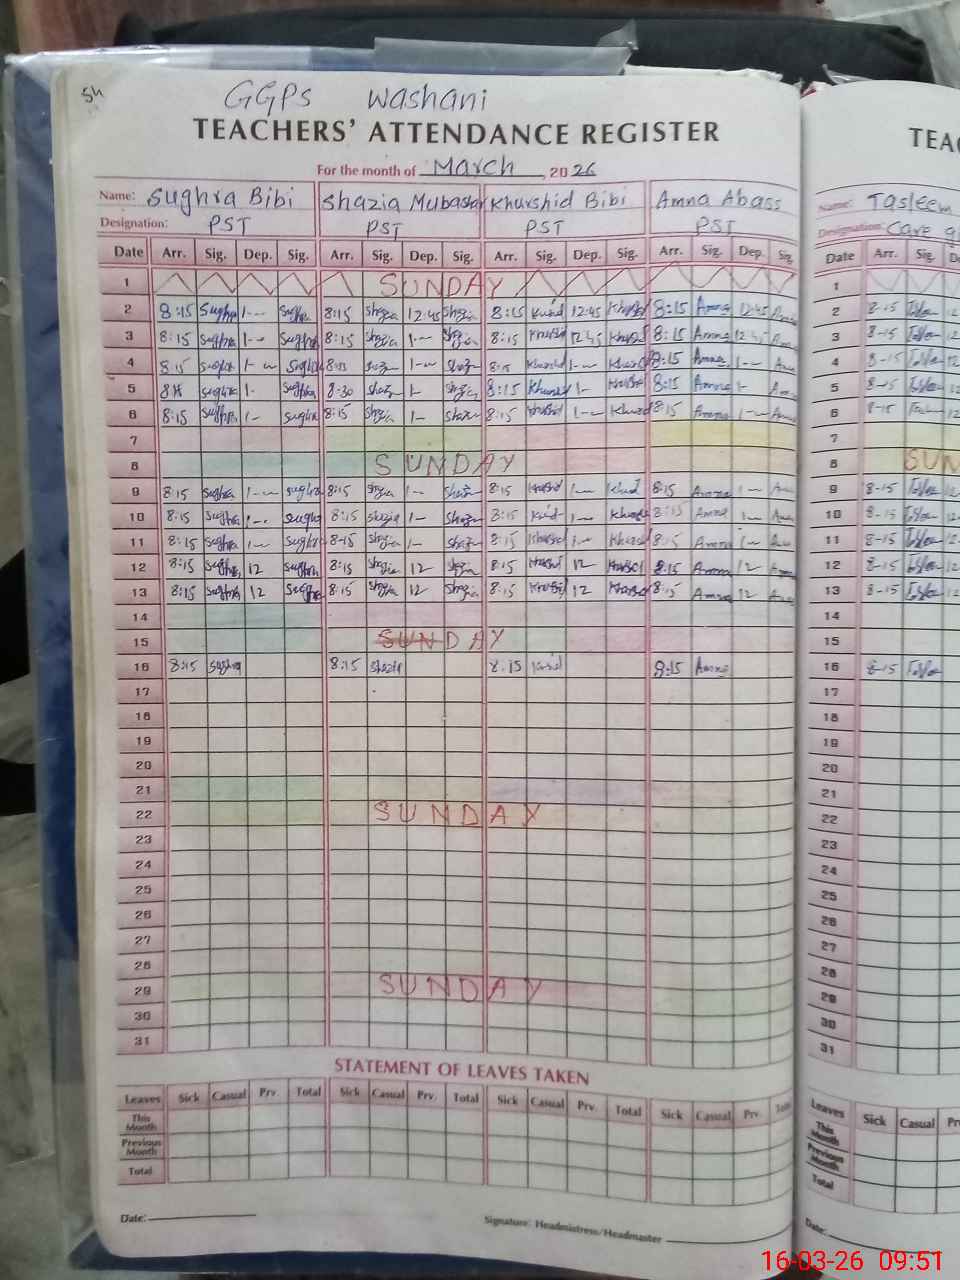 54
GGPS Washani
TEACHERS' ATTENDANCE REGISTER
For the month of March, 2026
Name: Sughra Bibi Shazia Mubashar Khurshid Bibi Amna Abass
Designation: PST PST PST PST
Date Arr. Sig. Dep. Sig. Arr. Sig. Dep. Sig. Arr. Sig. Dep. Sig. Arr. Sig. Dep. Sig.
1 SUNDAY
2 8:15 Sughra 1-- Sughra 8:15 Shazia 12:45 Shazia 8:15 12:45 8:15 Amna 12:45
3 8:15 Sughra 1-- Sughra 8:15 Shazia 1-- Shazia 8:15 12:45 8:15 Amna 12:45
4 8:15 Sughra 1-- Sughra 8:15 1-- 8:15 1-- 8:15 Amna 1--
5 Sughra 1- Sughra 8-30 1- 8:15 1- 8:15 Amna 1-
6 8:15 Sughra 1- Sughra 8:15 Shazia 1- 8:15 1-- 8:15 Amna 1--
7
8 SUNDAY
9 8:15 Sughra 1-- Sughra 8:15 Shazia 1-- 8:15 1-- 8:15 Amna 1--
10 8:15 Sughra 1-- Sughra 8:15 Shazia 1-- 8:15 1-- 8:15 Amna 1--
11 8:15 Sughra 1-- Sughra 8-15 Shazia 1- 8:15 1-- 8:15 Amna 1--
12 8:15 Sughra 12 Sughra 8:15 Shazia 12 Shazia 8:15 12 8:15 Amna 12
13 8:15 Sughra 12 Sughra 8:15 Shazia 12 Shazia 8:15 12 8:15 Amna 12
14
15 SUNDAY
16 8:15 Sughra 8:15 Shazia 8:15 8:15 Amna
17
18
19
20
21
22 SUNDAY
23
24
25
26
27
28
29 SUNDAY
30
31
STATEMENT OF LEAVES TAKEN
Leaves Sick Casual Prv. Total Sick Casual Prv. Total Sick Casual Prv. Total Sick Casual Prv. Total
This Month
Previous Month
Total
Date:
Signature: Headmistress/Headmaster
TEAC
Name: Tasleem
Designation: Care
Date Arr. Sig.
1
2 8-15 12
3 8-15 12
4 8-15 12
5 8-15 12
6 8-15 12
7
8 SUN
9 8-15 12
10 8-15 12
11 8-15 12
12 8-15 12
13 8-15 12
14
15
16 8-15
17
18
19
20
21
22
23
24
25
26
27
28
29
30
31
Leaves Sick Casual
This Month
Previous Month
Total
Date:
16-03-26 09:51